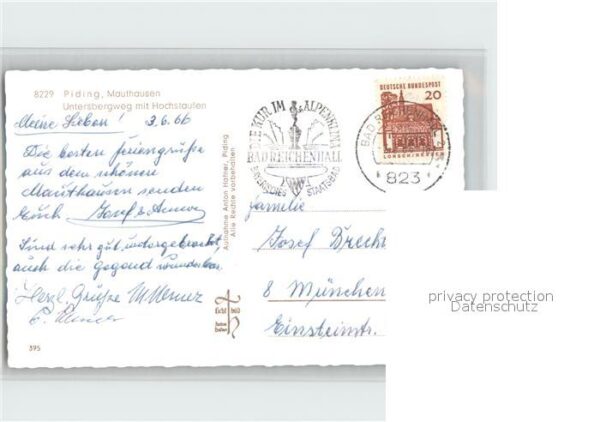 8229 Piding, Mauthausen
Untersbergweg mit Hochstaufen
Meine Lieben! 3.6.66
Die besten Feriengrüße
aus dem schönen
Mauthausen senden
Euch Josef &
Sind sehr gut untergebracht,
auch die Gegend wunderbar.
Herzl. Grüße
E.
395
Aufnahme Anton Hafner, Piding
Alle Rechte vorbehalten
DIE KUR IM ALPENKLIMA
BAD REICHENHALL
BAYERISCHES STAATSBAD
DEUTSCHE BUNDESPOST
20
LORSCH/HESSEN
BAD REICHENHALL
823
Familie
Josef Brecht
8 München
Einsteinstr.
privacy protection
Datenschutz